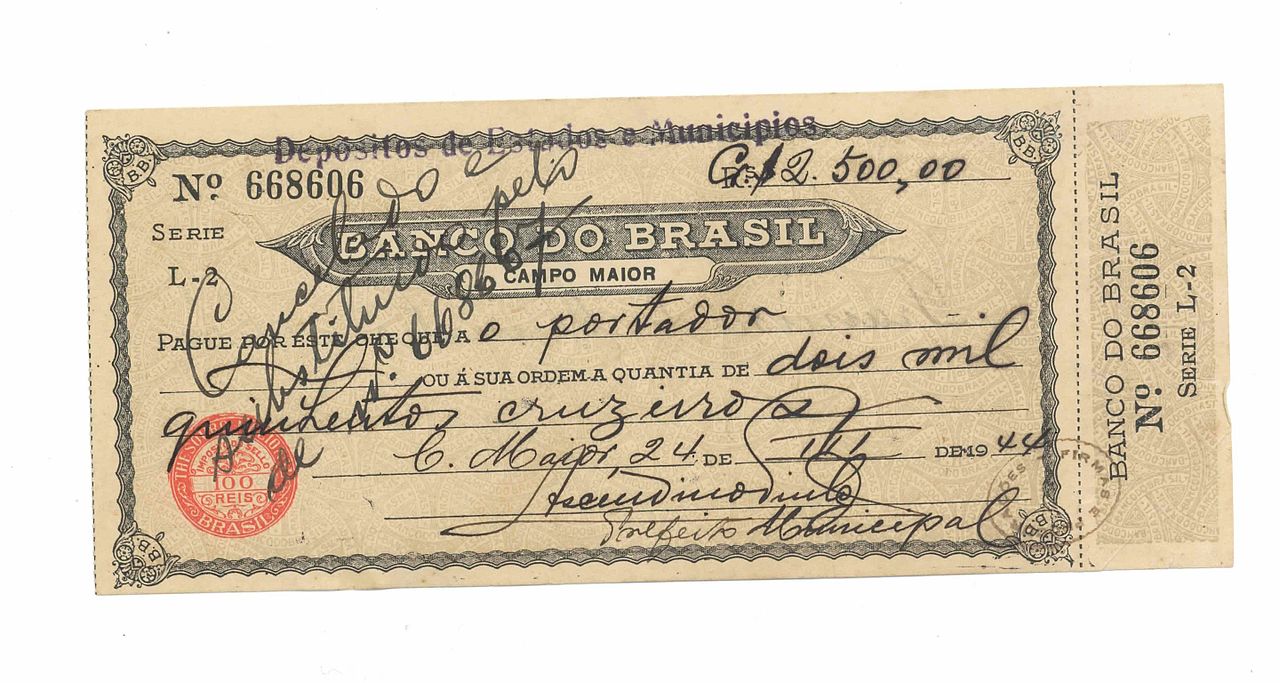 Depósitos de Estados e Municipios
Nº 668606
Rs. Cr.$ 2.500,00
SERIE
L-2
BANCO DO BRASIL
CAMPO MAIOR
PAGUE POR ESTE CHEQUE A o portador
OU Á SUA ORDEM A QUANTIA DE dois mil
quinhentos cruzeiros
C. Maior, 24 DE III DE 1944
Ascendino
Prefeito Municipal
Cancelado e
substituido pelo
de nº 668657
THESOURO NACIONAL
IMPOSTO DO SELLO
100
REIS
BRASIL
FIRMAS
BANCO DO BRASIL
Nº 668606
SERIE L-2